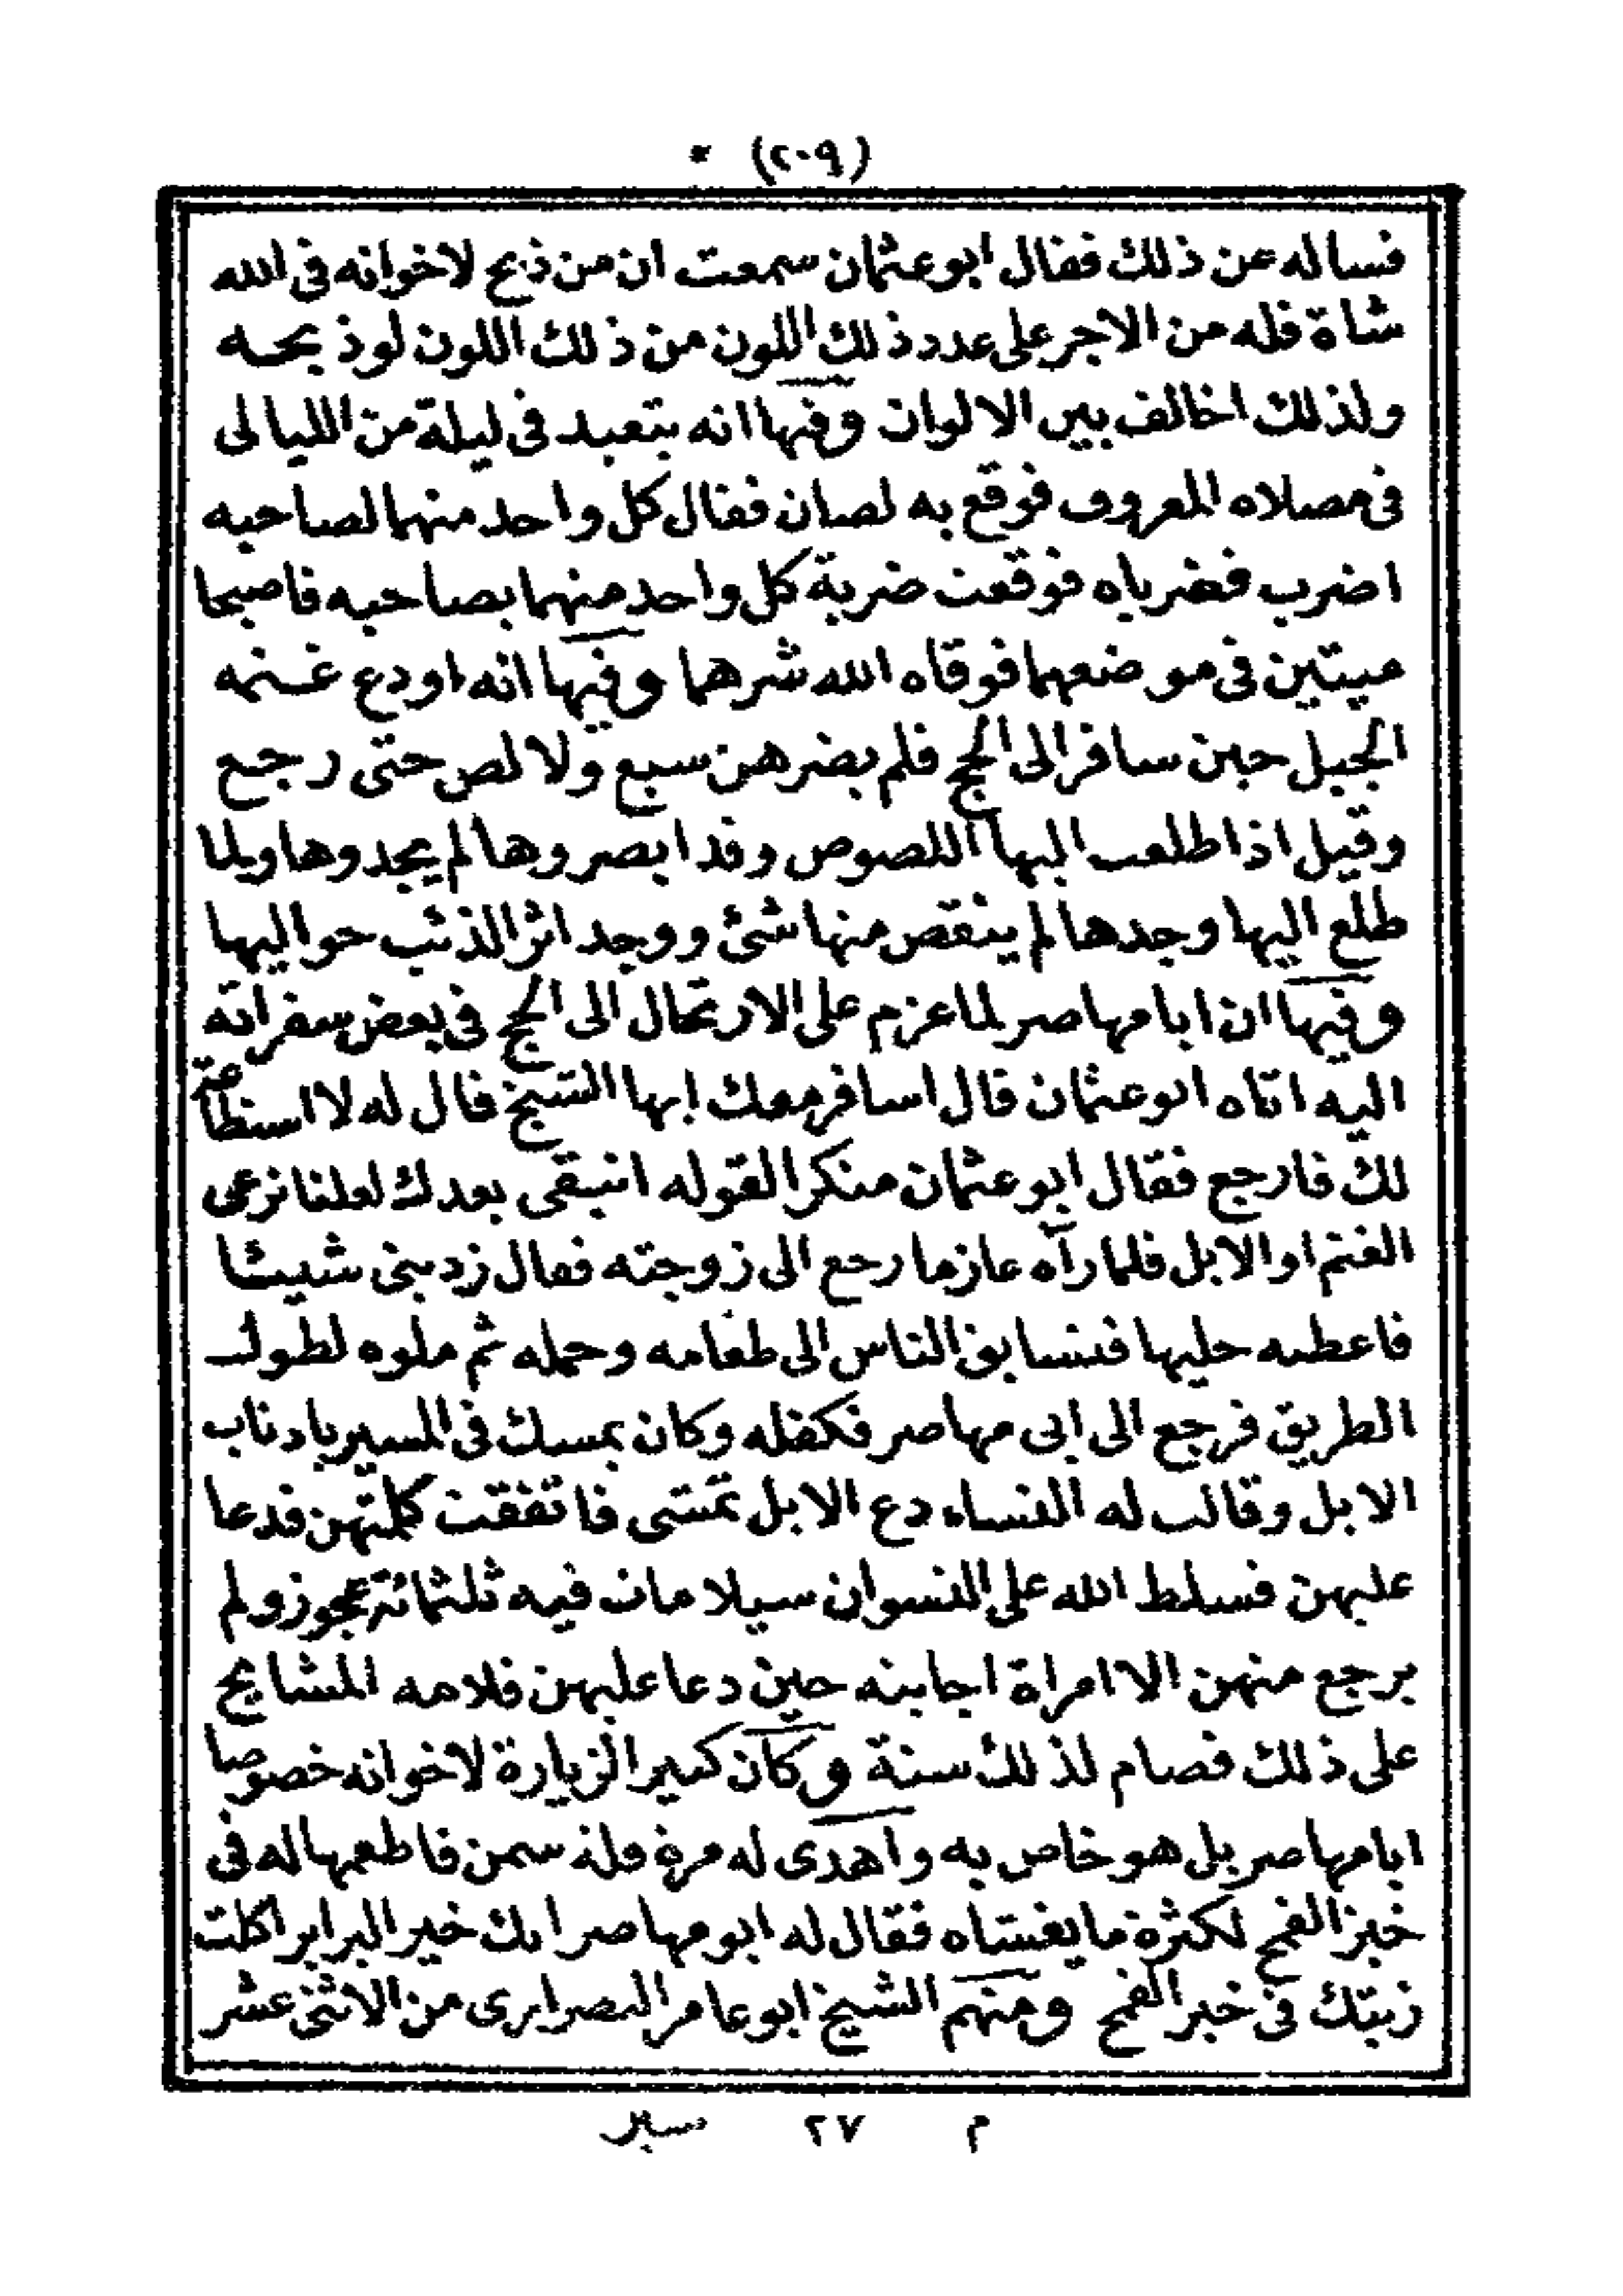 (٢٠٩) *
فساله عن ذلك فقال ابوعثمان سمعت ان من ذبح لاخوانه فى الله
شاة فله من الاجر على عدد ذلك اللون من ذلك اللون لوذبحه
ولذلك اخالف بين الالوان وفيها انه يتعبد فى ليلة من الليالى
فى مصلاه المعروف فوقع به لصان فقال كل واحد منهما لصاحبه
اضرب فضرباه فوقعت ضربة كل واحد منهما بصاحبه فاصبحا
ميتين فى موضعهما فوقاه الله شرهما وفيها انه اودع غنمه
الجبل حين سافر الى الحج فلم يضرهن سبع ولا لص حتى رجع
وقيل اذا طلعت اليها اللصوص وقد ابصروها لم يجدوها ولما
طلع اليها وجدها لم ينقص منها شئ ووجد اثر الذئب حواليها
وفيها ان ابا مهاصر لما عزم على الارتحال الى الحج فى بعض سفراته
اليه اتاه ابوعثمان قال اسافر معك ايها الشيخ قال له لا استطاعة
لك فارجع فقال ابوعثمان منكرا لقوله انبقى بعدك لعلنا نرعى
الغنم او الابل فلما رآه عازما رجع الى زوجته فقال زديننى شيئا
فاعطته حليها فتسابق الناس الى طعامه وحمله ثم ملوه لطول
الطريق فرجع الى ابى مهاصر فكفله وكان يمسك فى المسير باذناب
الابل وقالت له النساء دع الابل تمشى فاتفقت كلمتهن فدعا
عليهن فسلط الله على النسوان سيلا مات فيه ثلثمائة عجوز ولم
يرجع منهن الا امراة اجابته حين دعا عليهن فلامه المشايخ
على ذلك فصام لذلك سنة وكان كثير الزيارة لاخوانه خصوصا
ابا مهاصر بل هو خاص به واهدى له مرة قلة سمن فاطعمها له فى
خبز القمح لكثرة ما يغشاه فقال له ابو مهاصر انك خير البرابر اكلت
زيتك فى خبز القمح ومنهم الشيخ ابوعامر التصرارى من الاثنى عشر
م ٢٧ سير